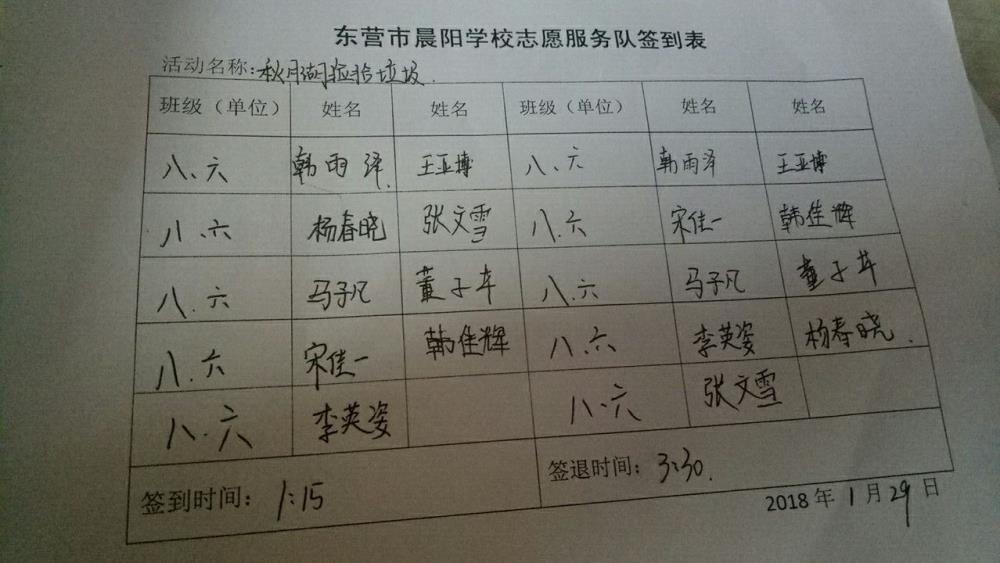 东营市晨阳学校志愿服务队签到表
活动名称:秋月湖捡拾垃圾
班级（单位） 姓名 姓名 班级（单位） 姓名 姓名
八、六 韩雨泽 王亚博 八、六 韩雨泽 王亚博
八、六 杨春晓 张文雪 八.六 宋佳一 韩佳辉
八.六 马子凡 董子年 八.六 马子凡 董子年
八.六 宋佳一 韩佳辉 八.六 李英姿 杨春晓.
八.六 李英姿 八.六 张文雪
签到时间：1:15 签退时间：3:30.
2018 年 1 月 29 日